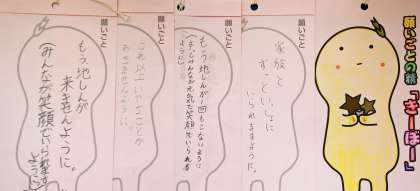 願いごとの精
「きーぼー」
願いごと
家族と
ずっといっしょに
いられますように。
願いごと
もう地しんが1回もこないように
みんなが元気で笑顔でいられる
ように
願いごと
これ以上いやなことが
おきませんように。
願いごと
もう地しんが
来ませんように。
みんなが笑顔でいられます
ように